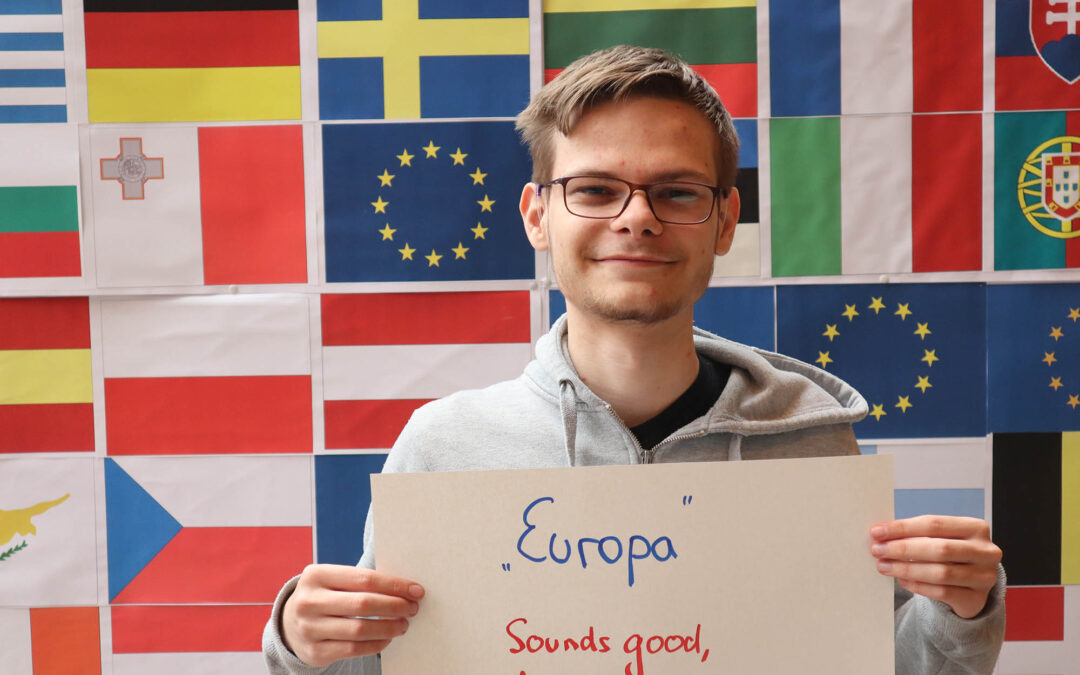 „Europa"
Sounds good,